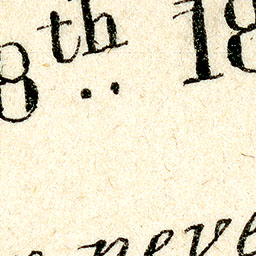 8th 18
neve